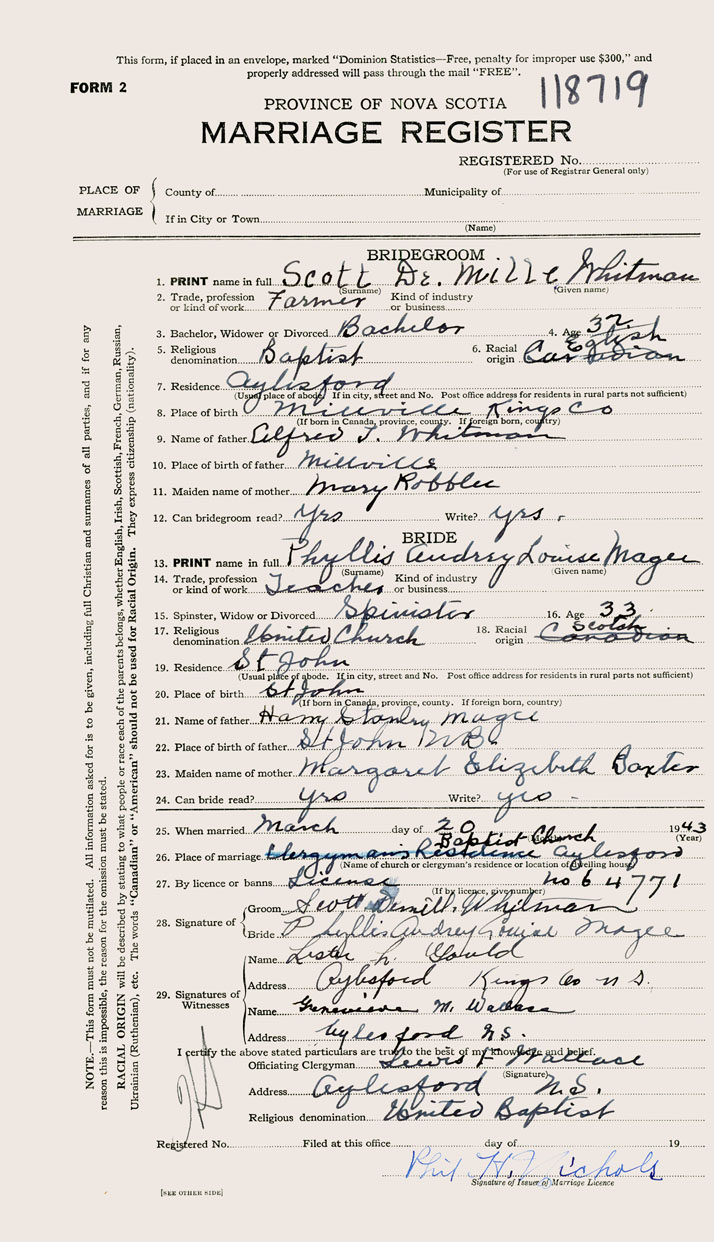 This form, if placed in an envelope, marked "Dominion Statistics—Free, penalty for improper use $300," and
properly addressed will pass through the mail "FREE".
FORM 2
118719
PROVINCE OF NOVA SCOTIA
MARRIAGE REGISTER
REGISTERED No.
(For use of Registrar General only)
PLACE OF MARRIAGE
County of Municipality of
If in City or Town
(Name)
BRIDEGROOM
1. PRINT name in full Scott De. Mille Whitman
(Surname) (Given name)
2. Trade, profession or kind of work Farmer Kind of industry or business
3. Bachelor, Widower or Divorced Bachelor 4. Age 32
5. Religious denomination Baptist 6. Racial origin English Canadian
7. Residence Aylesford
(Usual place of abode. If in city, street and No. Post office address for residents in rural parts not sufficient)
8. Place of birth Millville Kings Co
(If born in Canada, province, county. If foreign born, country)
9. Name of father Alfred J. Whitman
10. Place of birth of father Millville
11. Maiden name of mother Mary Robblee
12. Can bridegroom read? Yrs Write? yrs.
BRIDE
13. PRINT name in full Phyllis Audrey Louise Magee
(Surname) (Given name)
14. Trade, profession or kind of work Teacher Kind of industry or business
15. Spinster, Widow or Divorced Spinister 16. Age 33
17. Religious denomination United Church 18. Racial origin Scotch Canadian
19. Residence St John
(Usual place of abode. If in city, street and No. Post office address for residents in rural parts not sufficient)
20. Place of birth St John
(If born in Canada, province, county. If foreign born, country)
21. Name of father Harry Stanley Magee
22. Place of birth of father St John N B.
23. Maiden name of mother Margaret Elizabeth Baxter
24. Can bride read? yrs Write? yes -
25. When married March day of 20 1943
(Month) (Year)
26. Place of marriage Clergyman's Residence Baptist Church Aylesford
(Name of church or clergyman's residence or location of dwelling house)
27. By licence or banns License no 64771
(If by licence, give number)
28. Signature of
Groom Scott Demill. Whitman
Bride Phyllis Audrey Louise Magee
29. Signatures of Witnesses
Name Lester L. Gould
Address Aylesford Kings Co N S.
Name Genevieve M. Wallace
Address Aylesford N.S.
I certify the above stated particulars are true to the best of my knowledge and belief.
Officiating Clergyman Lewis F Wallace
(Signature)
Address Aylesford N.S.
Religious denomination United Baptist
Registered No. Filed at this office day of 19
Phil H. Nichols
Signature of Issuer of Marriage Licence
[SEE OTHER SIDE]
NOTE.—This form must not be mutilated. All information asked for is to be given, including full Christian and surnames of all parties, and if for any
reason this is impossible, the reason for the omission must be stated.
RACIAL ORIGIN will be described by stating to what people or race each of the parents belongs, whether English, Irish, Scottish, French, German, Russian,
Ukrainian (Ruthenian), etc. The words "Canadian" or "American" should not be used for Racial Origin. They express citizenship (nationality).